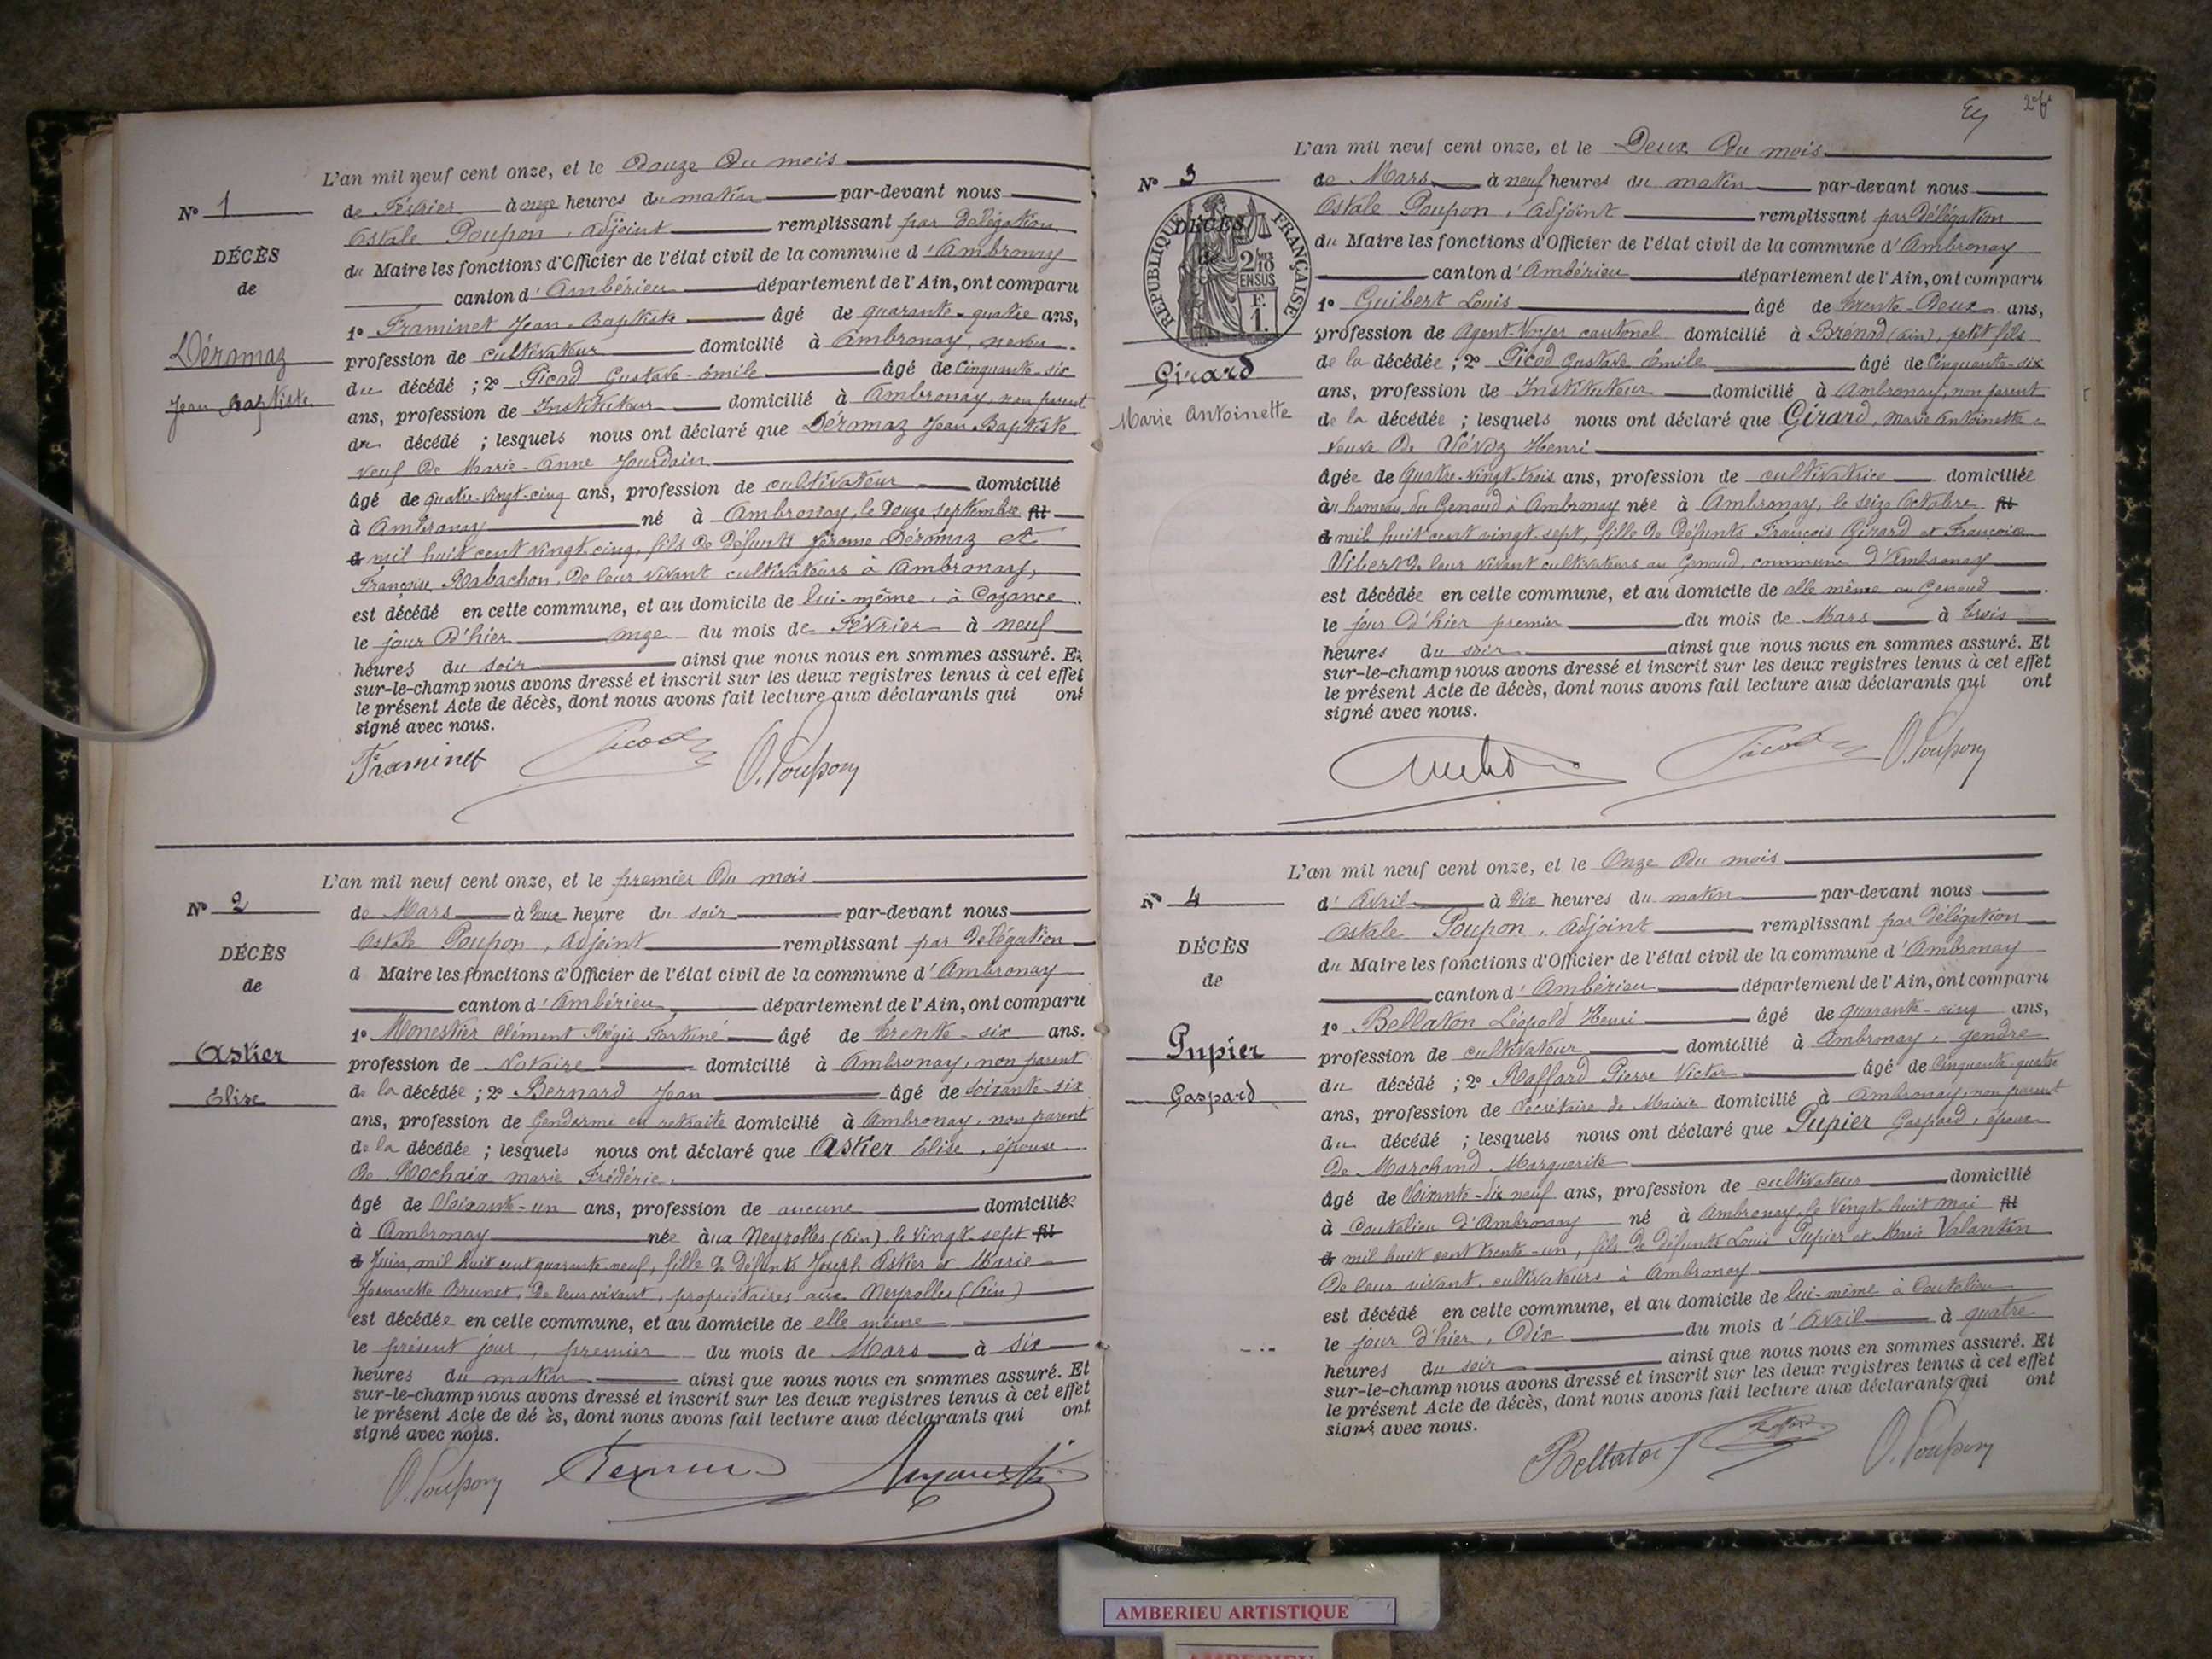 L'an mil neuf cent onze, et le Douze du mois
N° 1
de Février à onze heures du matin par-devant nous
Octave Poupon, adjoint remplissant par Délégation
DÉCÈS
du Maire les fonctions d'Officier de l'état civil de la commune d'Ambronay
de
canton d'Ambérieu département de l'Ain, ont comparu
1° Framinet Jean-Baptiste âgé de quarante-quatre ans,
Déromaz
profession de cultivateur domicilié à Ambronay, neveu
Jean Baptiste
du décédé ; 2° Picod Gustave-émile âgé de Cinquante-six
ans, profession de Instituteur domicilié à Ambronay, non parent
du décédé ; lesquels nous ont déclaré que Déromaz Jean Baptiste
veuf de Marie-Anne Jourdain
âgé de quatre-vingt-cinq ans, profession de cultivateur domicilié
à Ambronay né à Ambronay, le Douze septembre fil
d mil huit cent vingt-cinq, fils de défunts Jérome Déromaz et
Françoise Rabachon, de leur vivant cultivateurs à Ambronay,
est décédé en cette commune, et au domicile de lui-même, à Cozance
le jour d'hier onze du mois de Février à neuf
heures du soir ainsi que nous nous en sommes assuré. Et
sur-le-champ nous avons dressé et inscrit sur les deux registres tenus à cet effet
le présent Acte de décès, dont nous avons fait lecture aux déclarants qui ont
signé avec nous.
Framinet Picod O. Poupon
L'an mil neuf cent onze, et le premier du mois
N° 2
de Mars à Deux heure du soir par-devant nous
Octave Poupon, adjoint remplissant par Délégation
DÉCÈS
d Maire les fonctions d'Officier de l'état civil de la commune d'Ambronay
de
canton d'Ambérieu département de l'Ain, ont comparu
1° Monestier Clément Régis Fortuné âgé de trente-six ans.
Astier
profession de Notaire domicilié à Ambronay, non parent
Elise
de la décédée ; 2° Bernard Jean âgé de soixante-six
ans, profession de Gendarme en retraite domicilié à Ambronay, non parent
de la décédée ; lesquels nous ont déclaré que Astier Elise, épouse
de Rochaix marie Frédéric
âgé de Soixante-un ans, profession de aucune domiciliée
à Ambronay née aux Neyrolles (Ain), le vingt-sept fil
d Juin, mil huit cent quarante neuf, fille de défunts Joseph Astier et Marie
Jeannette Brunet, de leur vivant, propriétaires aux Neyrolles (Ain)
est décédée en cette commune, et au domicile de elle même
le présent jour, premier du mois de Mars à six
heures du matin ainsi que nous nous en sommes assuré. Et
sur-le-champ nous avons dressé et inscrit sur les deux registres tenus à cet effet
le présent Acte de dé ès, dont nous avons fait lecture aux déclarants qui ont
signé avec nous.
O. Poupon
L'an mil neuf cent onze, et le Deux du mois
N° 3
de Mars à neuf heures du matin par-devant nous
Octave Poupon, adjoint remplissant par Délégation
RÉPUBLIQUE FRANÇAISE
DÉCÈS
de
2/10 EN SUS
F. 1.
du Maire les fonctions d'Officier de l'état civil de la commune d'Ambronay
canton d'Ambérieu département de l'Ain, ont comparu
1° Guibert Louis âgé de trente-Deux ans,
profession de Agent-Voyer cantonal domicilié à Brénod (Ain), petit fils
Girard
de la décédée ; 2° Picod Gustave Émile âgé de Cinquante-six
Marie Antoinette
ans, profession de Instituteur domicilié à Ambronay, non parent
de la décédée ; lesquels nous ont déclaré que Girard, Marie Antoinette
veuve de Henri
âgée de Quatre-vingt-trois ans, profession de cultivatrice domiciliée
au hameau du Genoud à Ambronay née à Ambronay, le seize Octobre fil
d mil huit cent vingt-sept, fille de défunts François Girard et Françoise
Vibert de leur vivant cultivateurs au Genoud, commune d'Ambronay
est décédée en cette commune, et au domicile de elle même au Genoud
le jour d'hier premier du mois de Mars à trois
heures du soir ainsi que nous nous en sommes assuré. Et
sur-le-champ nous avons dressé et inscrit sur les deux registres tenus à cet effet
le présent Acte de décès, dont nous avons fait lecture aux déclarants qui ont
signé avec nous.
Picod O. Poupon
L'an mil neuf cent onze, et le Onze du mois
N° 4
d'Avril à Dix heures du matin par-devant nous
Octave Poupon, adjoint remplissant par Délégation
DÉCÈS
du Maire les fonctions d'Officier de l'état civil de la commune d'Ambronay
de
canton d'Ambérieu département de l'Ain, ont comparu
1° Bellaton Léopold Henri âgé de quarante-cinq ans,
Pupier
profession de cultivateur domicilié à Ambronay, gendre
Gaspard
du décédé ; 2° Raffard Pierre Victor âgé de Cinquante-quatre
ans, profession de Secrétaire de Mairie domicilié à Ambronay, non parent
du décédé ; lesquels nous ont déclaré que Pupier Gaspard, époux
de Marchand Marguerite
âgé de Soixante-dix neuf ans, profession de cultivateur domicilié
à Coutelieu d'Ambronay né à Ambronay, le vingt-huit mai fil
d mil huit cent trente-un, fils de défunts Louis Pupier et Marie Valantin
de leur vivant, cultivateurs à Ambronay
est décédé en cette commune, et au domicile de lui-même à Coutelieu
le jour d'hier, Dix du mois d'Avril à quatre
heures du soir ainsi que nous nous en sommes assuré. Et
sur-le-champ nous avons dressé et inscrit sur les deux registres tenus à cet effet
le présent Acte de décès, dont nous avons fait lecture aux déclarants qui ont
signé avec nous.
Bellaton O. Poupon
AMBERIEU ARTISTIQUE
AMBERIEU